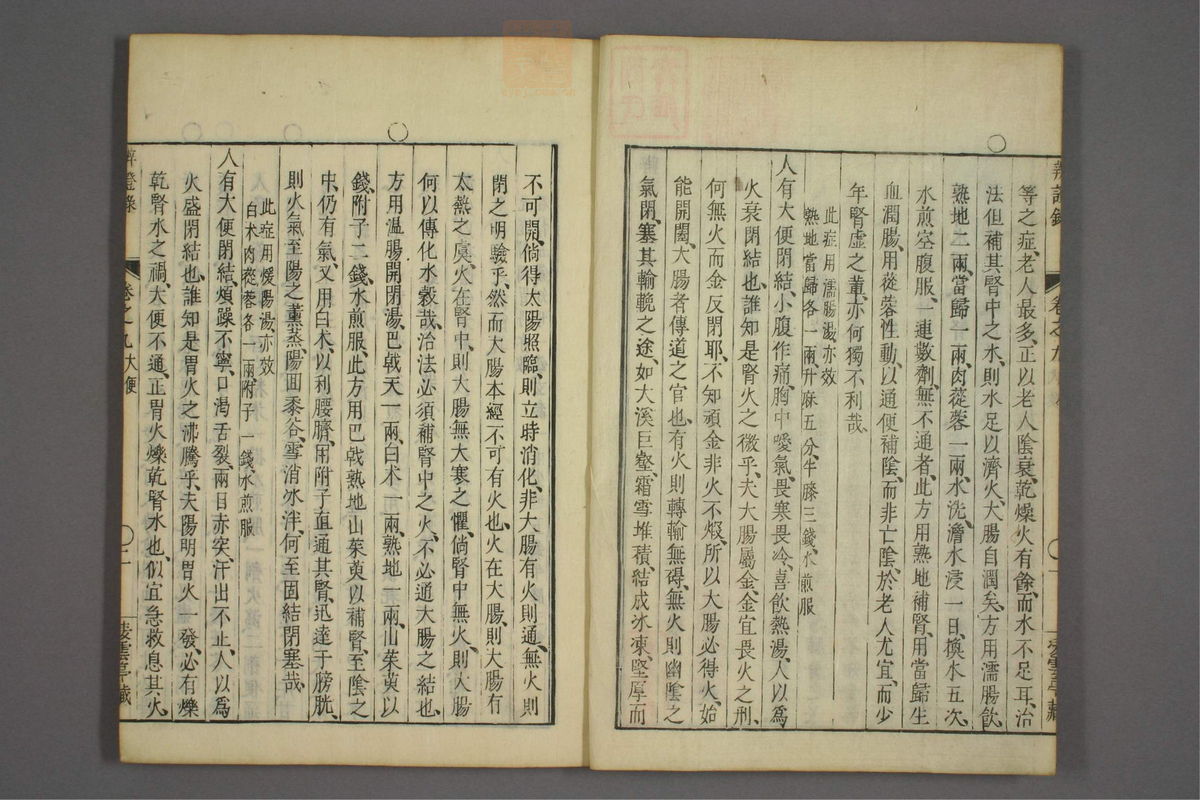 等之症、老人最多、正以老人陰衰、乾燥火有餘、而水不足耳、治
法但補其腎中之水、則水足以濟火、大腸自潤矣、方用濡腸飲
熟地二兩、當歸一兩、肉蓯蓉一兩、水洗、澹水浸一日、換水五次、
水煎、空腹服、一連數劑、無不通者、此方用熟地補腎、用當歸生
血潤腸、用蓯蓉性動、以通便補陰、而非亡陰、於老人尤宜、而少
年腎虛之輩、亦何獨不利哉、
此症用濡腸湯亦效
熟地當歸各一兩、升麻五分、牛膝三錢、水煎服
人有大便閉結、小腹作痛、胸中噯氣、畏寒畏冷、喜飲熱湯、人以為
火衰閉結也、誰知是腎火之微乎、夫大腸屬金、金宜畏火之刑、
何無火而金反閉耶、不知頑金非火不煅、所以大腸必得火、始
能開闔、大腸者傳道之官也、有火則轉輸無碍、無火則幽陰之
氣閉、塞其輸輓之途、如大溪巨壑、霜雪堆積、結成冰凍、堅厚而
不可開、倘得太陽照臨、則立時消化、非大腸有火則通、無火則
閉之明驗乎、然而大腸本經、不可有火也、火在大腸、則大腸有
太熱之虞、火在腎中、則大腸無大寒之懼、倘腎中無火、則大腸
何以傳化水穀哉、治法必須補腎中之火、不必通大腸之結也、
方用溫腸開閉湯、巴戟天一兩、白朮一兩、熟地一兩、山茱萸五
錢、附子二錢、水煎服、此方用巴戟熟地山茱萸以補腎、至陰之
中、仍有氣、又用白朮、以利腰臍、用附子直通其腎、迅達于膀胱、
則火氣至陽之薰蒸、陽回黍谷、雪消冰泮、何至固結閉塞哉、
此症用煖陽湯亦效
白朮肉蓯蓉各一兩附子一錢、水煎服
人有大便閉結、煩躁不寧、口渴舌裂、兩目赤突、汗出不止、人以為
火盛閉結也、誰知是胃火之沸騰乎、夫陽明胃火一發、必有爍
乾腎水之禍、大便不通、正胃火爍乾腎水也、似宜急救息其火、
卷之九大便